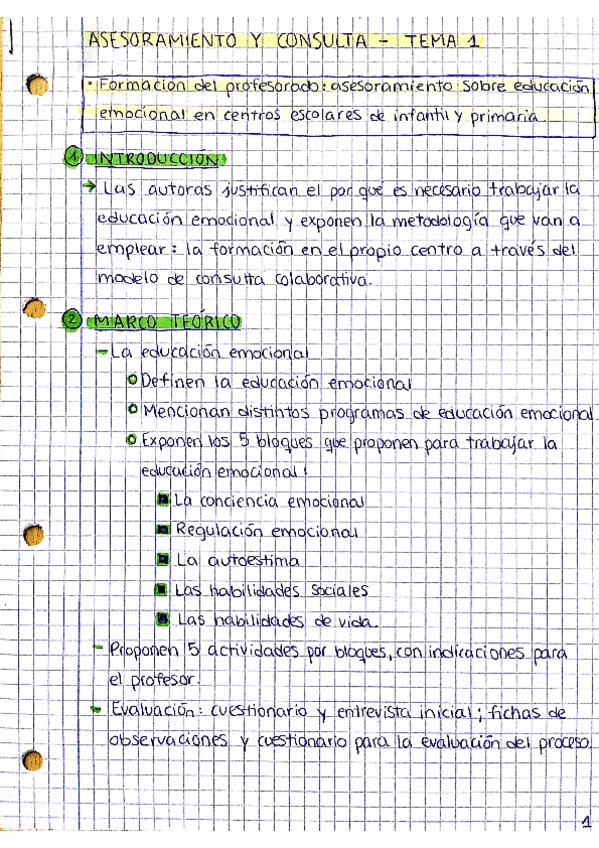 ASESORAMIENTO Y CONSULTA - TEMA 1
• Formación del profesorado: asesoramiento sobre educación
emocional en centros escolares de infantil y primaria.
1 INTRODUCCIÓN
→ Las autoras justifican el por qué es necesario trabajar la
educación emocional y exponen la metodología que van a
emplear: la formación en el propio centro a través del
modelo de consulta colaborativa.
2 MARCO TEÓRICO
- La educación emocional
○ Definen la educación emocional
○ Mencionan distintos programas de educación emocional.
○ Exponen los 5 bloques que proponen para trabajar la
educación emocional:
■ La conciencia emocional
■ Regulación emocional
■ La autoestima
■ Las habilidades sociales
■ Las habilidades de vida.
- Proponen 5 actividades por bloques, con indicaciones para
el profesor.
- Evaluación: cuestionario y entrevista inicial; fichas de
observaciones y cuestionario para la evaluación del proceso.
1